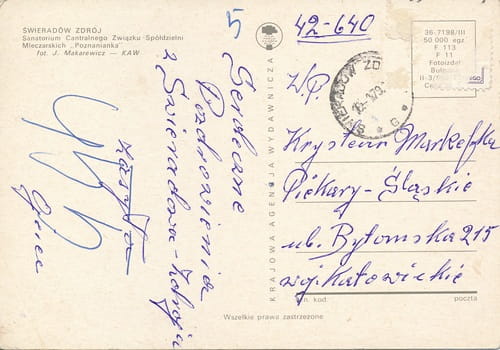 ŚWIERADÓW ZDRÓJ
Sanatorium Cantralnego Związku Spółdzielni
Mleczarskich „Poznanianka"
fot. J. Makarewicz — KAW
5
Serdeczne
Pozdrowienia
z Świeradowa-Zdroju
zasyła
KRAJOWA AGENCJA WYDAWNICZA
42-640
36-7198/III
50 000 egz
F 113
F 11
ŚWIERADÓW ZD
G
W.P.
Krystian
Piekary-Śląskie
ul. Bytomska 215
woj. Katowickie
kod
poczta
Wszelkie prawa zastrzeżone